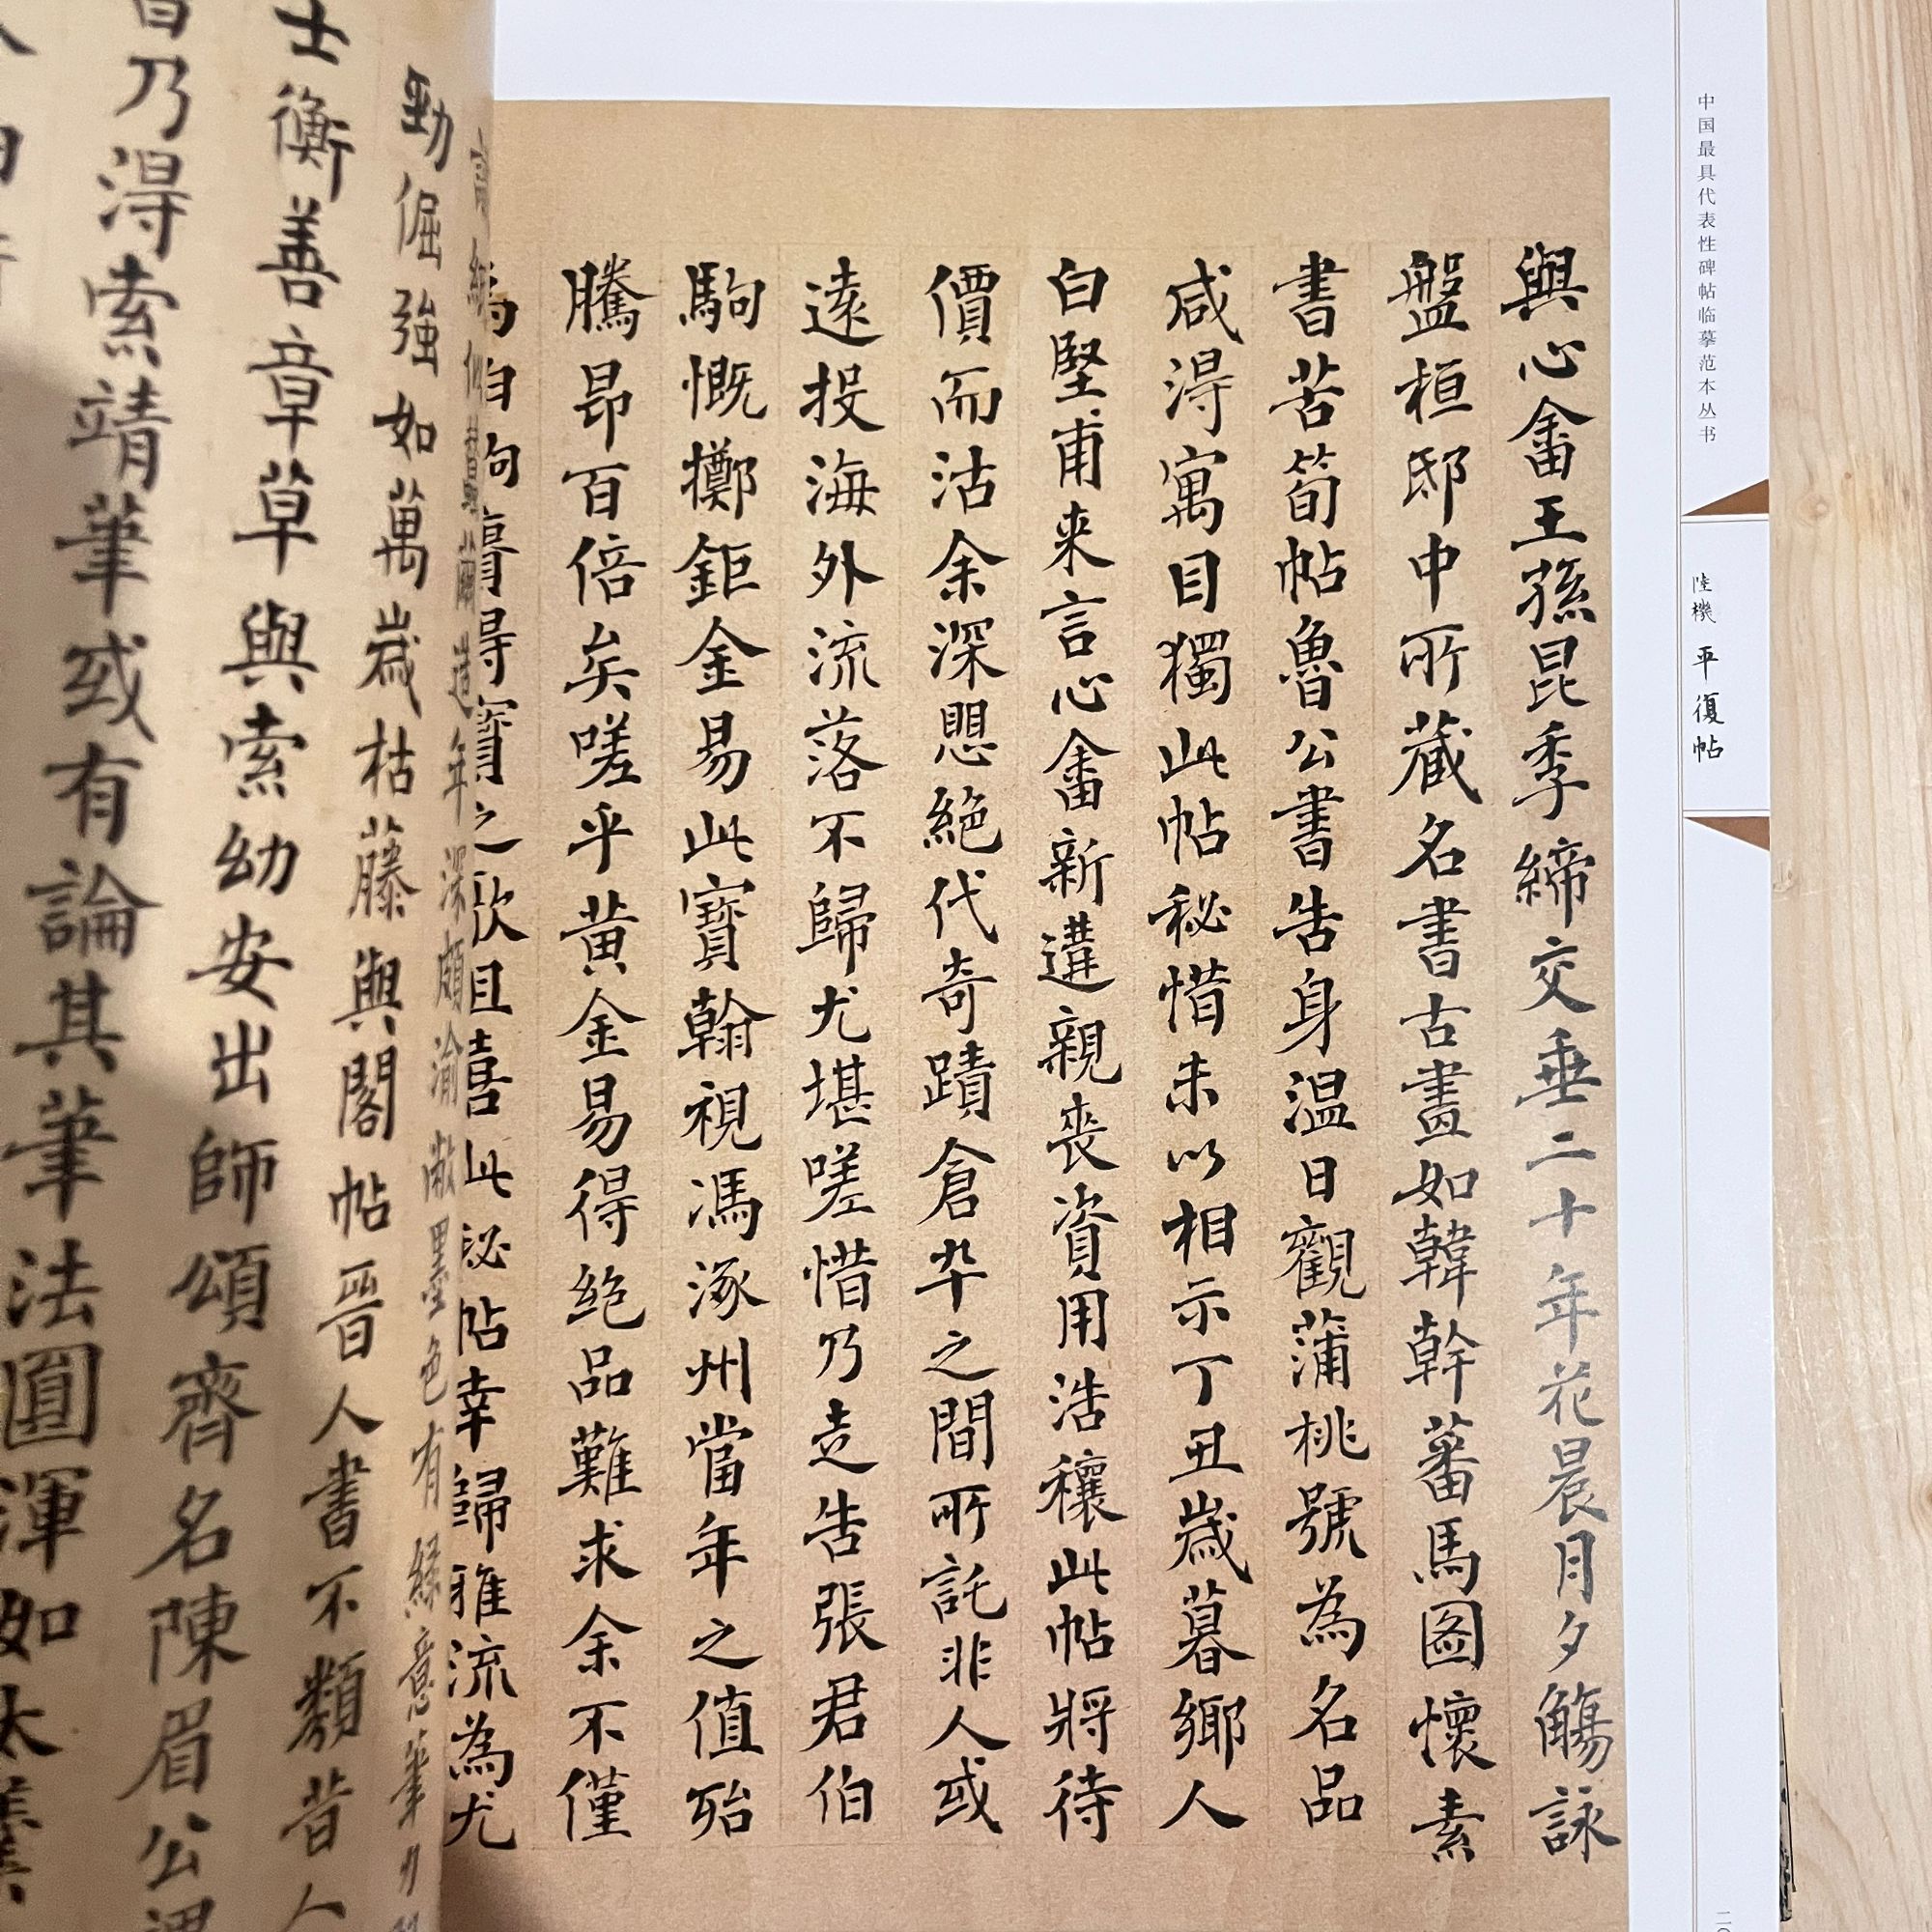 中国最具代表性碑帖临摹范本丛书
陸機 平復帖
與心畬王孫昆季締交垂二十年花晨月夕觴詠
盤桓邸中所藏名書古畫如韓幹蕃馬圖懷素
書苦筍帖魯公書告身温日觀蒲桃號為名品
咸得寓目獨此帖秘惜未以相示丁丑歲暮鄉人
白堅甫来言心畬新遘親喪資用浩穰此帖將待
價而沽余深愳絶代奇蹟倉卒之間所託非人或
遠投海外流落不歸尤堪嗟惜乃走告張君伯
駒慨擲鉅金易此寶翰視馮涿州當年之值殆
騰昂百倍矣嗟乎黄金易得絶品難求余不僅
為伯駒賡得寶之歌且喜此秘帖幸歸雅流為尤
年深頗渝敝墨色有綠意筆力
勁倔強如萬歲枯藤與閣帖晉人書不類昔人
士衡善章草與索幼安出師頌齊名陳眉公謂
乃得索靖筆或有論其筆法圓渾如太羹